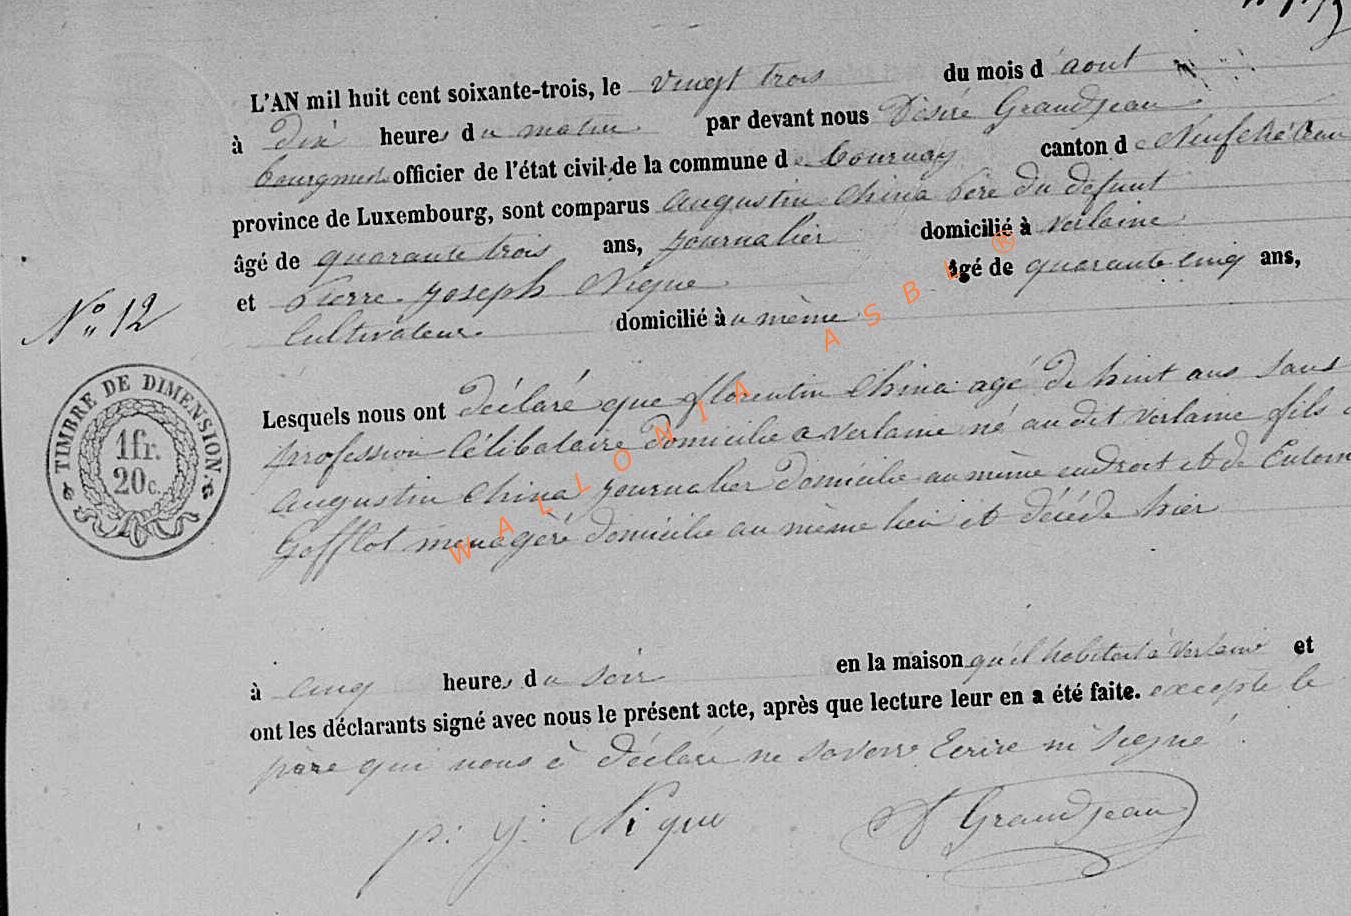 L'AN mil huit cent soixante-trois, le vingt trois du mois d'aout
à dix heures du matin par devant nous Désiré Grandjean
bourgmest officier de l'état civil de la commune de Tournay canton de Neufchéteau
province de Luxembourg, sont comparus augustin China père du défunt
âgé de quarante trois ans, journalier domicilié à verlaine
et Pierre Joseph Nique âgé de quarante cinq ans,
Cultivateur domicilié au même
N° 12
TIMBRE DE DIMENSION.
1fr.
20c.
Lesquels nous ont déclaré que florentin China agé de huit ans sans
profession Célibataire domicilié a verlaine né au dit verlaine fils
augustin China journalier domicilié au même endroit et de
Gofflot ménagère domicilie au même lieu et décédé hier
à cinq heures du soir en la maison qu'il habitait à Verlaine et
ont les déclarants signé avec nous le présent acte, après que lecture leur en a été faite. excepté le
père qui nous à déclaré ne savoir Ecrire ni signé
p. j. Nique
D Grandjean
WALLONIA ASBL ®